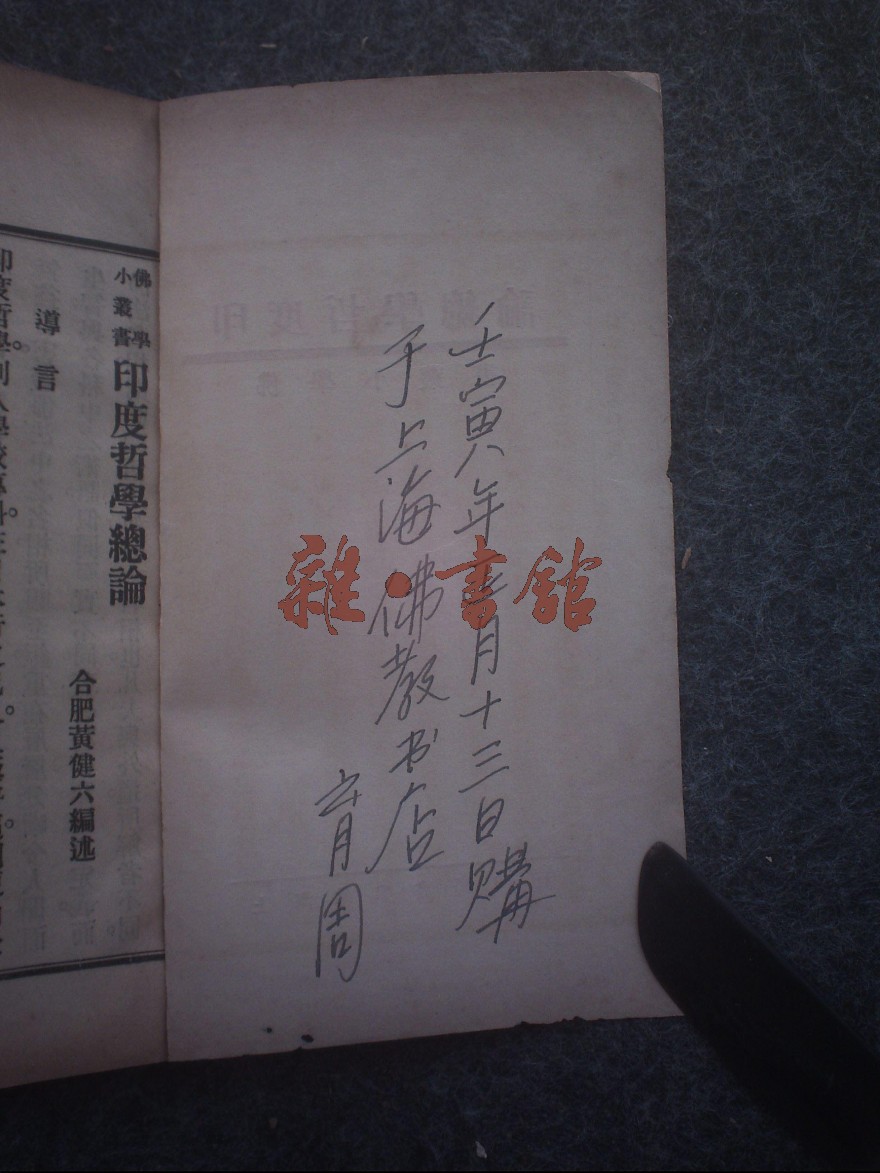 壬寅年三月十三日購
于上海佛教书店
育周
雜·書館
佛學
小叢書
印度哲學總論
合肥黃健六編述
導言